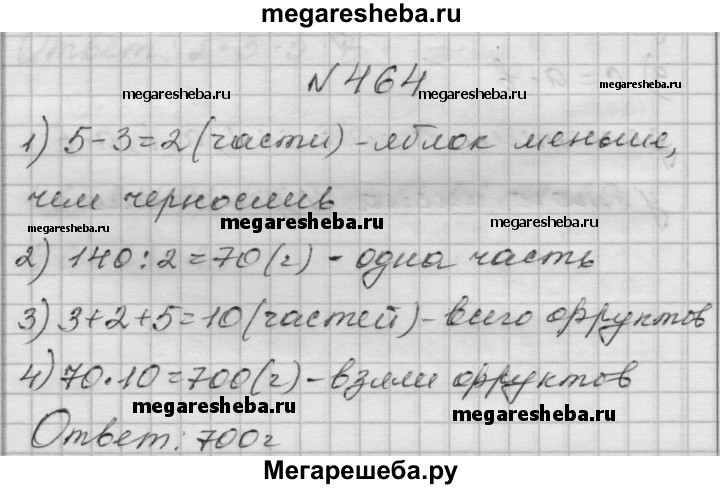 megaresheba.ru
N 464
megaresheba.ru
megaresheba.ru
1) 5-3=2 (части) - яблок меньше,
чем чернослив
megaresheba.ru
megaresheba.ru
2) 140:2=70 (г) - одна часть
3) 3+2+5=10 (частей) - всего фруктов
4) 70·10=700 (г) - взяли фруктов
megaresheba.ru
megaresheba.ru
Ответ: 700г
Мегарешеба.ру